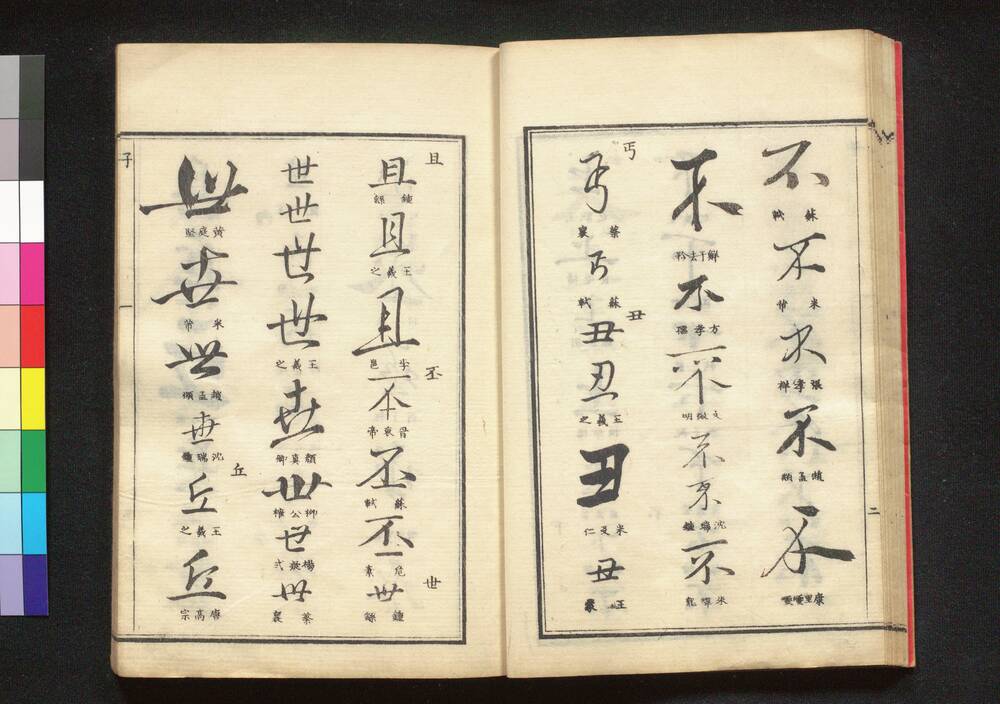 不
蘇軾
不
米芾
不
張孝祥
不
趙孟頫
不
康里巎巎
二
不
鮮于去矜
不
方孝孺
不
文徵明
不
不
不
丐
丐
蔡襄
丐
蘇軾
丑
丑
丑
王羲之
丑
米友仁
丑
且
且
鍾繇
且
王羲之
且
李邕
丕
丕
晉哀帝
丕
蘇軾
丕
危素
世
世
鍾繇
世
世
世
世
王羲之
世
顏真卿
世
柳公權
世
楊凝式
世
蔡襄
世
黃庭堅
世
米芾
世
趙孟頫
世
丘
丘
王羲之
丘
唐高宗
子
一